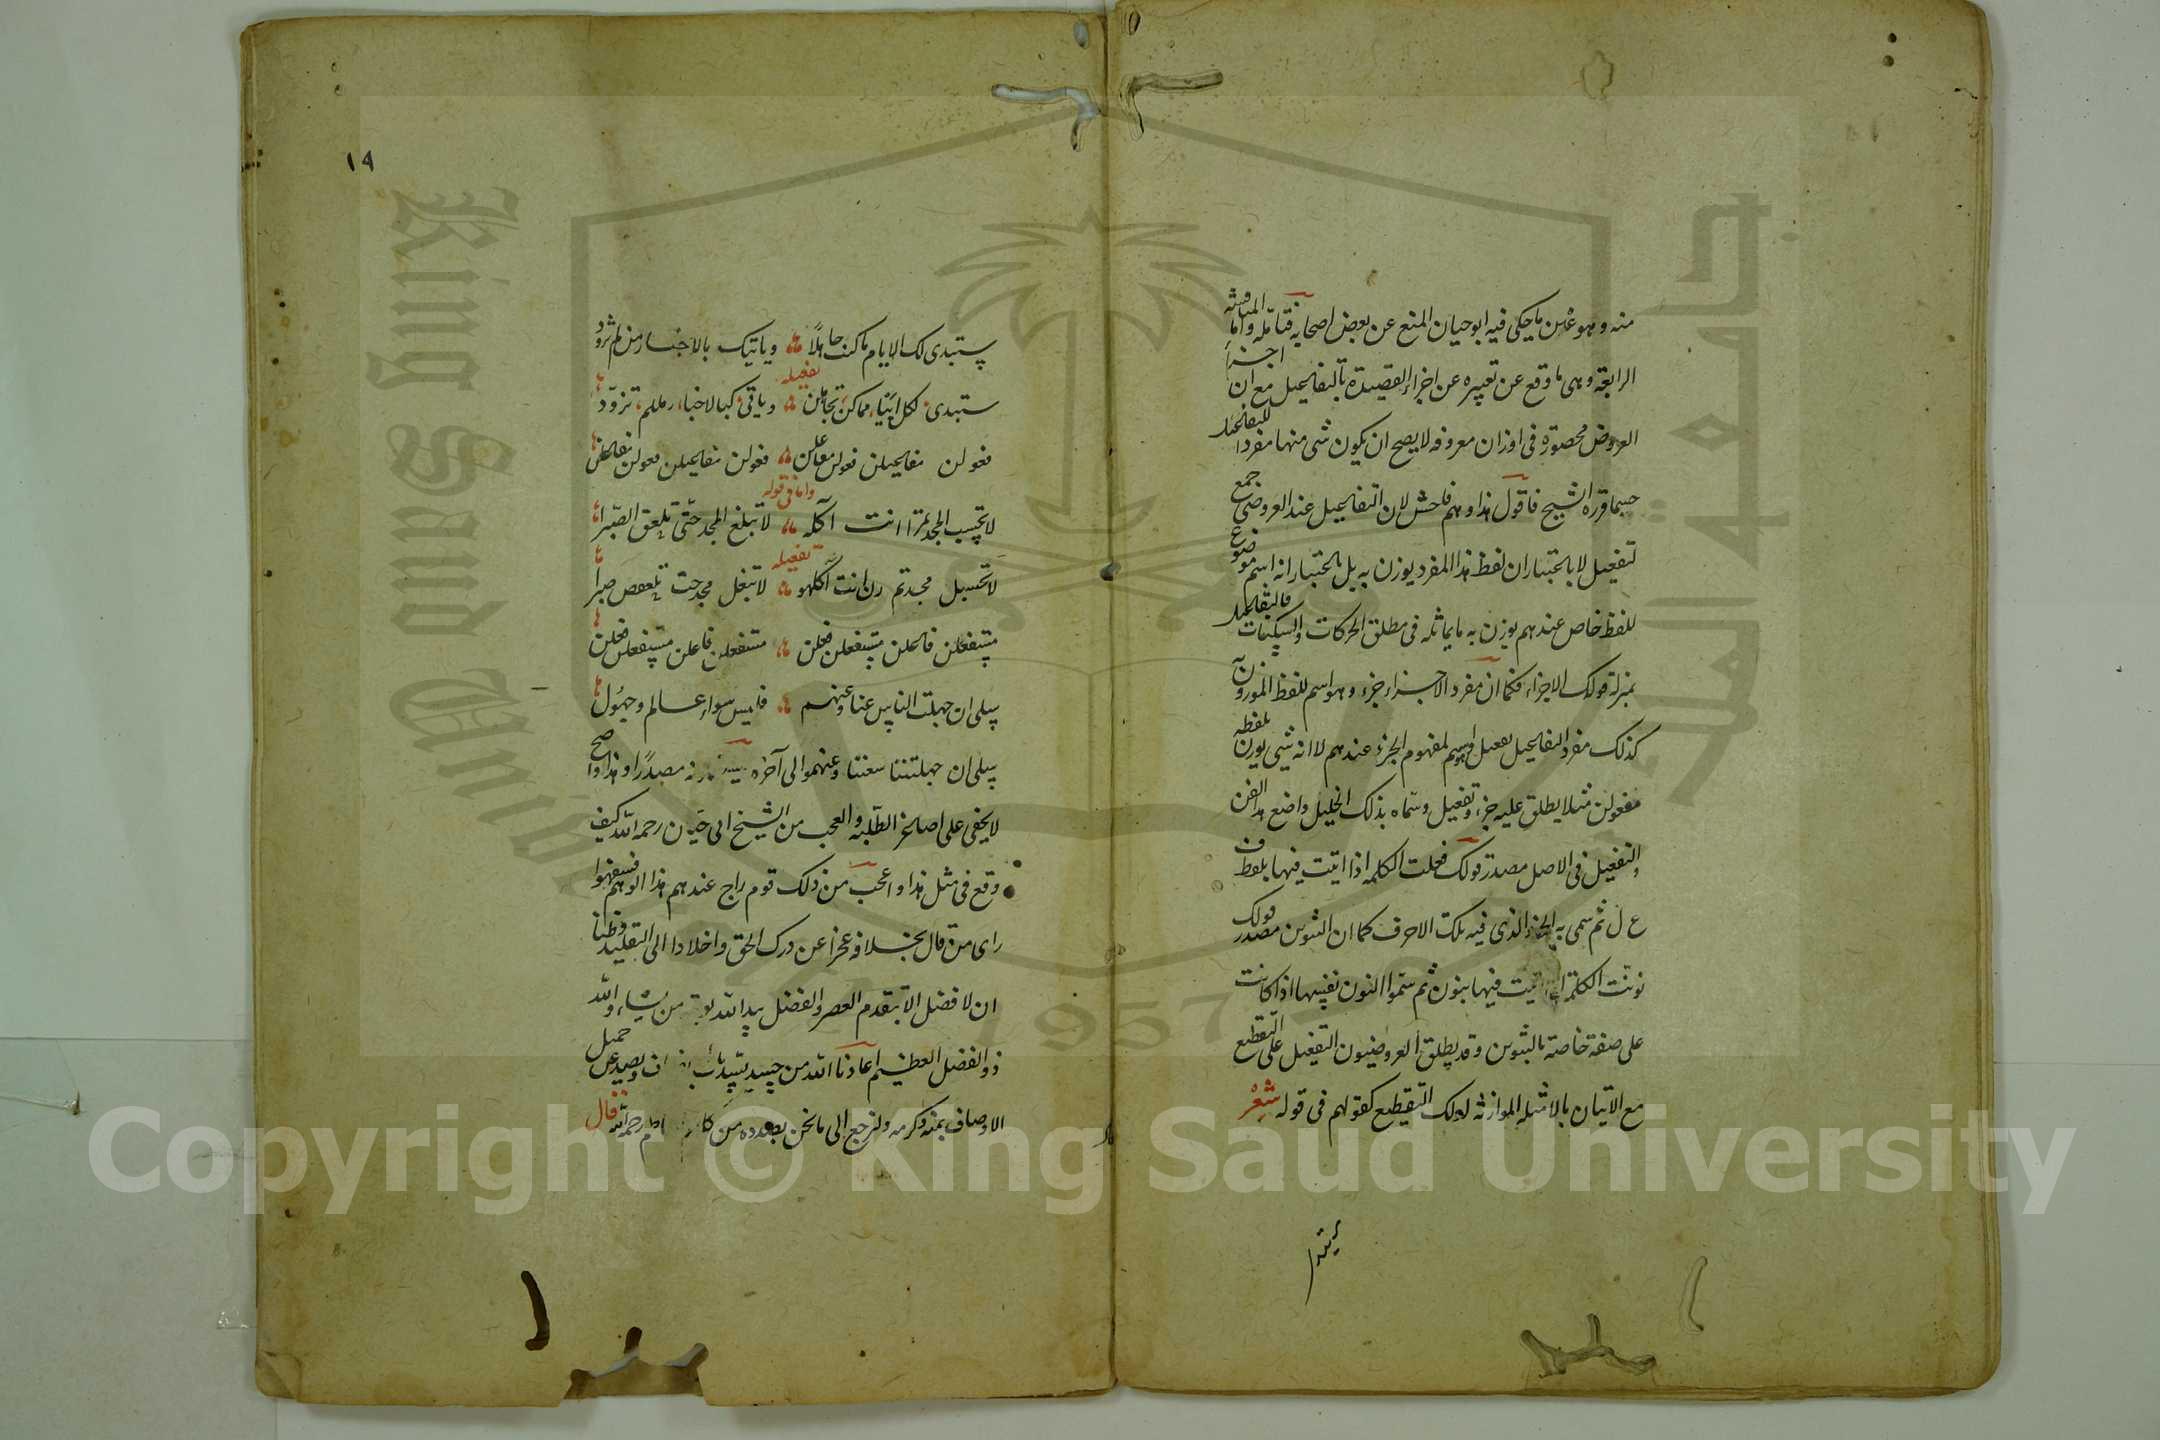 منه وهو عين ما حكى فيه ابو حيان المنع عن بعض اصحابه فتأمله واما المناقشة
الرابعة وهى ما وقع عن تعبيره عن اجزاء القصيدة بالتفاعيل مع ان اجزأ
العروض محصورة فى اوزان معروفة لا يصح ان يكون شى منها مفردا للتفاعيل
حسبما قرره الشيح فاقول هذا وهم فاحش لان التفاعيل عند العروضى جمع
تفعيل لا باعتبار ان لفظ هذا المفرد يوزن به بل باعتبار انه اسم موضوع
للفظ خاص عندهم يوزن به ما يماثله فى مطلق الحركات والسكنات فالتفاعيل
بمنزلة قولك الاجزاء فكما ان مفرد الاجزاء جزء وهو اسم للفظ الموزون به
كذلك مفرد التفاعيل تفعيل وهو اسم لمفهوم الجزء عندهم لا انه شى يوزن بلفظه
مفعولن مثلا يطلق عليه جزء وتفعيل وسماه بذلك الخليل واضع هذا الفن
والتفعيل فى الاصل مصدر قولك فعلت الكلمة اذا اتيت فيها بلفظ ف
ع ل ثم سمى به الجزء الذى فيه تلك الاحرف كما ان التنوين مصدر قولك
نونت الكلمة اذا اتيت فيها بنون ثم سموا النون نفسها اذا كانت
على صفة خاصة بالتنوين وقد يطلق العروضيون التفعيل على التقطيع
مع الاتيان بالامثلة الموازنة لذلك التقطيع كقولهم فى قوله شعر
ستبدى
١٩
ستبدى لك الايام ما كنت جاهلًا وياتيك بالاخبار من لم تزود
تفعيله
ستبدى لكل ايّيا مماكن تجاهلن وياتى كبالاخبا رملم تزوّد
فعولن مفاعيلن فعولن مفاعلن فعولن مفاعيلن فعولن مفاعلن
واما فى قوله
لا تحسب المجد تمرا انت آكله لا تبلغ المجد حتّى تلعق الصّبرا
تفعيله
لا تحسبل مجدتم رن انت آكلهو لا تبلغل مجدحت تلعقص صبرا
مستفعلن فاعلن مستفعلن فعلن مستفعلن فاعلن مستفعلن فعلن
سلى ان جهلت الناس عنا وعنهم فليس سواء عالم وجهول
سلى ان جهلتننا سعننا وعنهموالى آخره مصدرًا وهذا واضح
لا يخفى على اصاغر الطلبة والعجب من الشيخ ابى حيّان رحمه الله كيف
وقع فى مثل هذا واعجب من ذلك قوم راج عندهم هذا الوهم فسفهوا
راى من قال بخلافه عجزا عن درك الحق واخلادا الى التقليد وظنا
ان لا فضل الا بتقدم العصر والفضل بيد الله يوتيه من يشاء والله
ذو الفضل العظيم اعاذنا الله من حسد يسد باب الانصاف ويصد عن جميل
الاوصاف بمنه وكرمه ولنرجع الى ما نحن بصدده من كلام الناظم رحمه الله قال
King Saud University
جامعة الملك
1957
Copyright © King Saud University